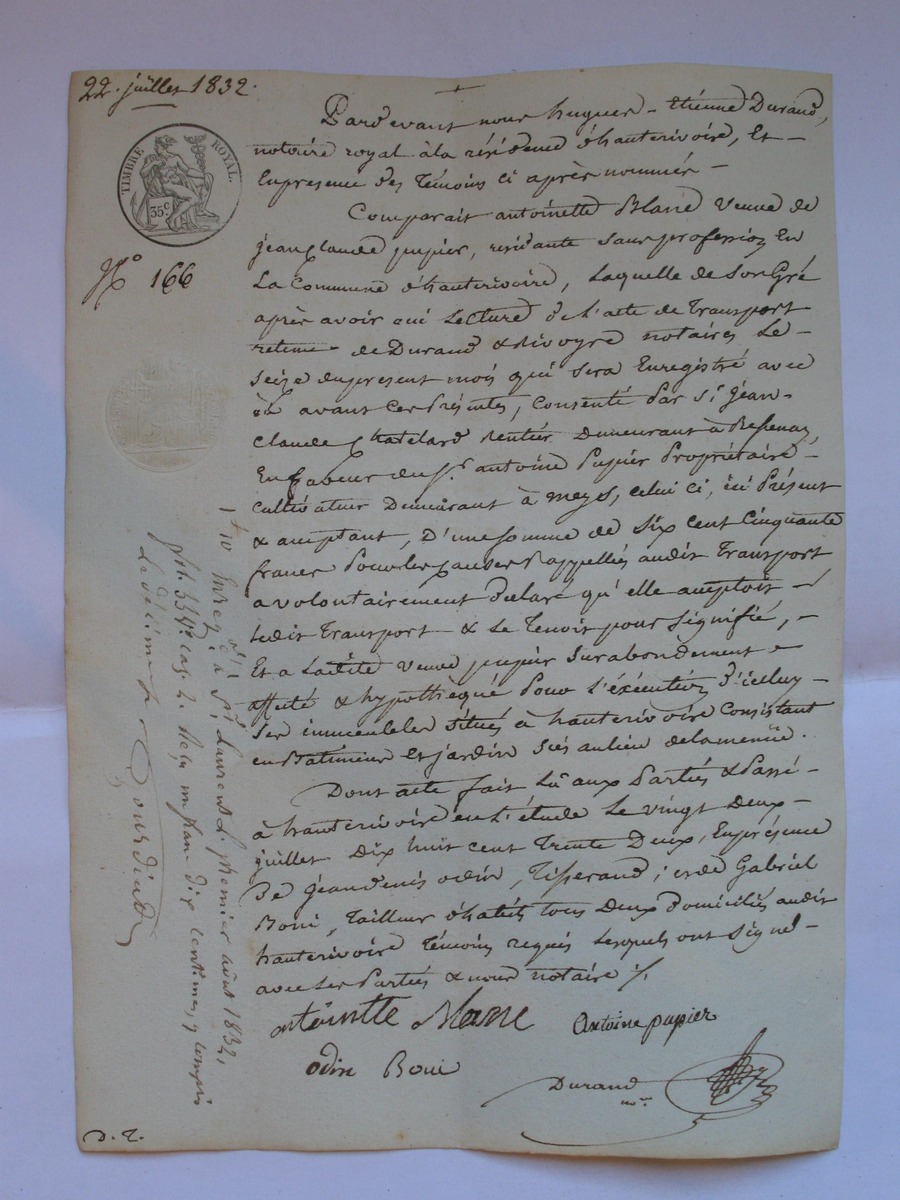 22. juillet 1832.
Pardevant nous hugues-Etienne Durand,
notaire royal à la résidence d'hauterivoire, Et
En presence des Témoins ci après nommés
TIMBRE ROYAL.
35 c
Comparait antoinette Blanc Veuve de
jean claude pupier, residante sans profession En
N.° 166
La Commune d'hauterivoire, Laquelle de Son Gré
après avoir oui Lecture de L'acte de Transport
retenue de Durand & notaires Le
Seize du present mois qui sera Enregistré avec
ou avant Ces Présentes, Consenti Par Sr jean
Claude Chatelard Rentier Demeurant à
En faveur du Sr antoine Pupier Propriétaire
Cultivateur Demeurant à meys, Celui ci, ici Présent
& acceptant, D'une somme de Six Cent Cinquante
francs Pour les Causes Rappellées audit Transport
a volontairement déclaré qu'elle acceptoit
Ledit Transport & Le Tenoit pour Signifié,
Et a Ladite Veuve pupier Surabondement
affecté & hypothéqué Pour L'éxécution d'iceluy
Ses immeubles Situés à hauterivoire Consistant
en Batiments Et jardin Sis au lieu de la
Dont acte fait Lu aux Parties & Passé
à hauterivoire en L'étude Le vingt Deux
juillet Dix huit Cent Trente Deux, En présence
De jean denis odin, Tisserand; et de Gabriel
Boni, Tailleur d'habits tous Deux Domiciliés audit
hauterivoire Témoins requis Lesquels ont Signé
avec Les Parties & nous notaire ./.
antoinette Blanc
Antoine pupier
odin Boni
Durand
nore
Enreg. à St Laurent Le premier août 1832,
fol. 33 Vo. Cas. 2. Reçu un fran dix centimes, y compris
Le décime
D. T.